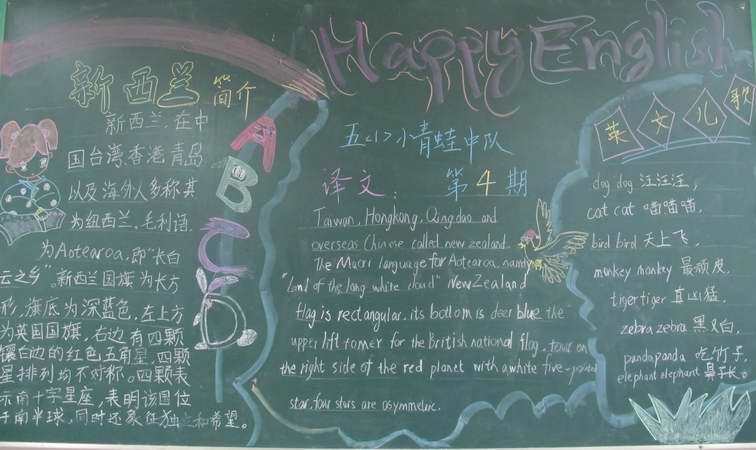 Happy English
新西兰 简介
新西兰,在中
国台湾,香港,青岛
以及海外人多称其
为纽西兰,毛利语
为Aotearoa,即"长白
云之乡"。新西兰国旗为长方
形,旗底为深蓝色,左上方
为英国国旗,右边有四颗
镶白边的红色五角星,四颗
星排列均不对称。四颗表
示南十字星座,表明该国位
于南半球,同时还象征独立和希望。
A
B
C
D
五<1>小青蛙中队
译文: 第4期
Taiwan, Hongkong, Qingdao and
overseas Chinese called new zealand.
The Maori language for Aotearoa, namely
"Land of the long white cloud" New Zealand
flag is rectangular. its bottom is deer blue the
upper lift tomer for the British national flag. tour on
the right side of the red planet with a white five-pointed
star, four stars are asymmetric.
英文儿歌
dog dog 汪汪汪,
cat cat 喵喵喵,
bird bird 天上飞,
monkey monkey 最顽皮,
tiger tiger 真凶猛,
zebra zebra 黑又白,
panda panda 吃竹子,
elephant elephant 鼻子长。